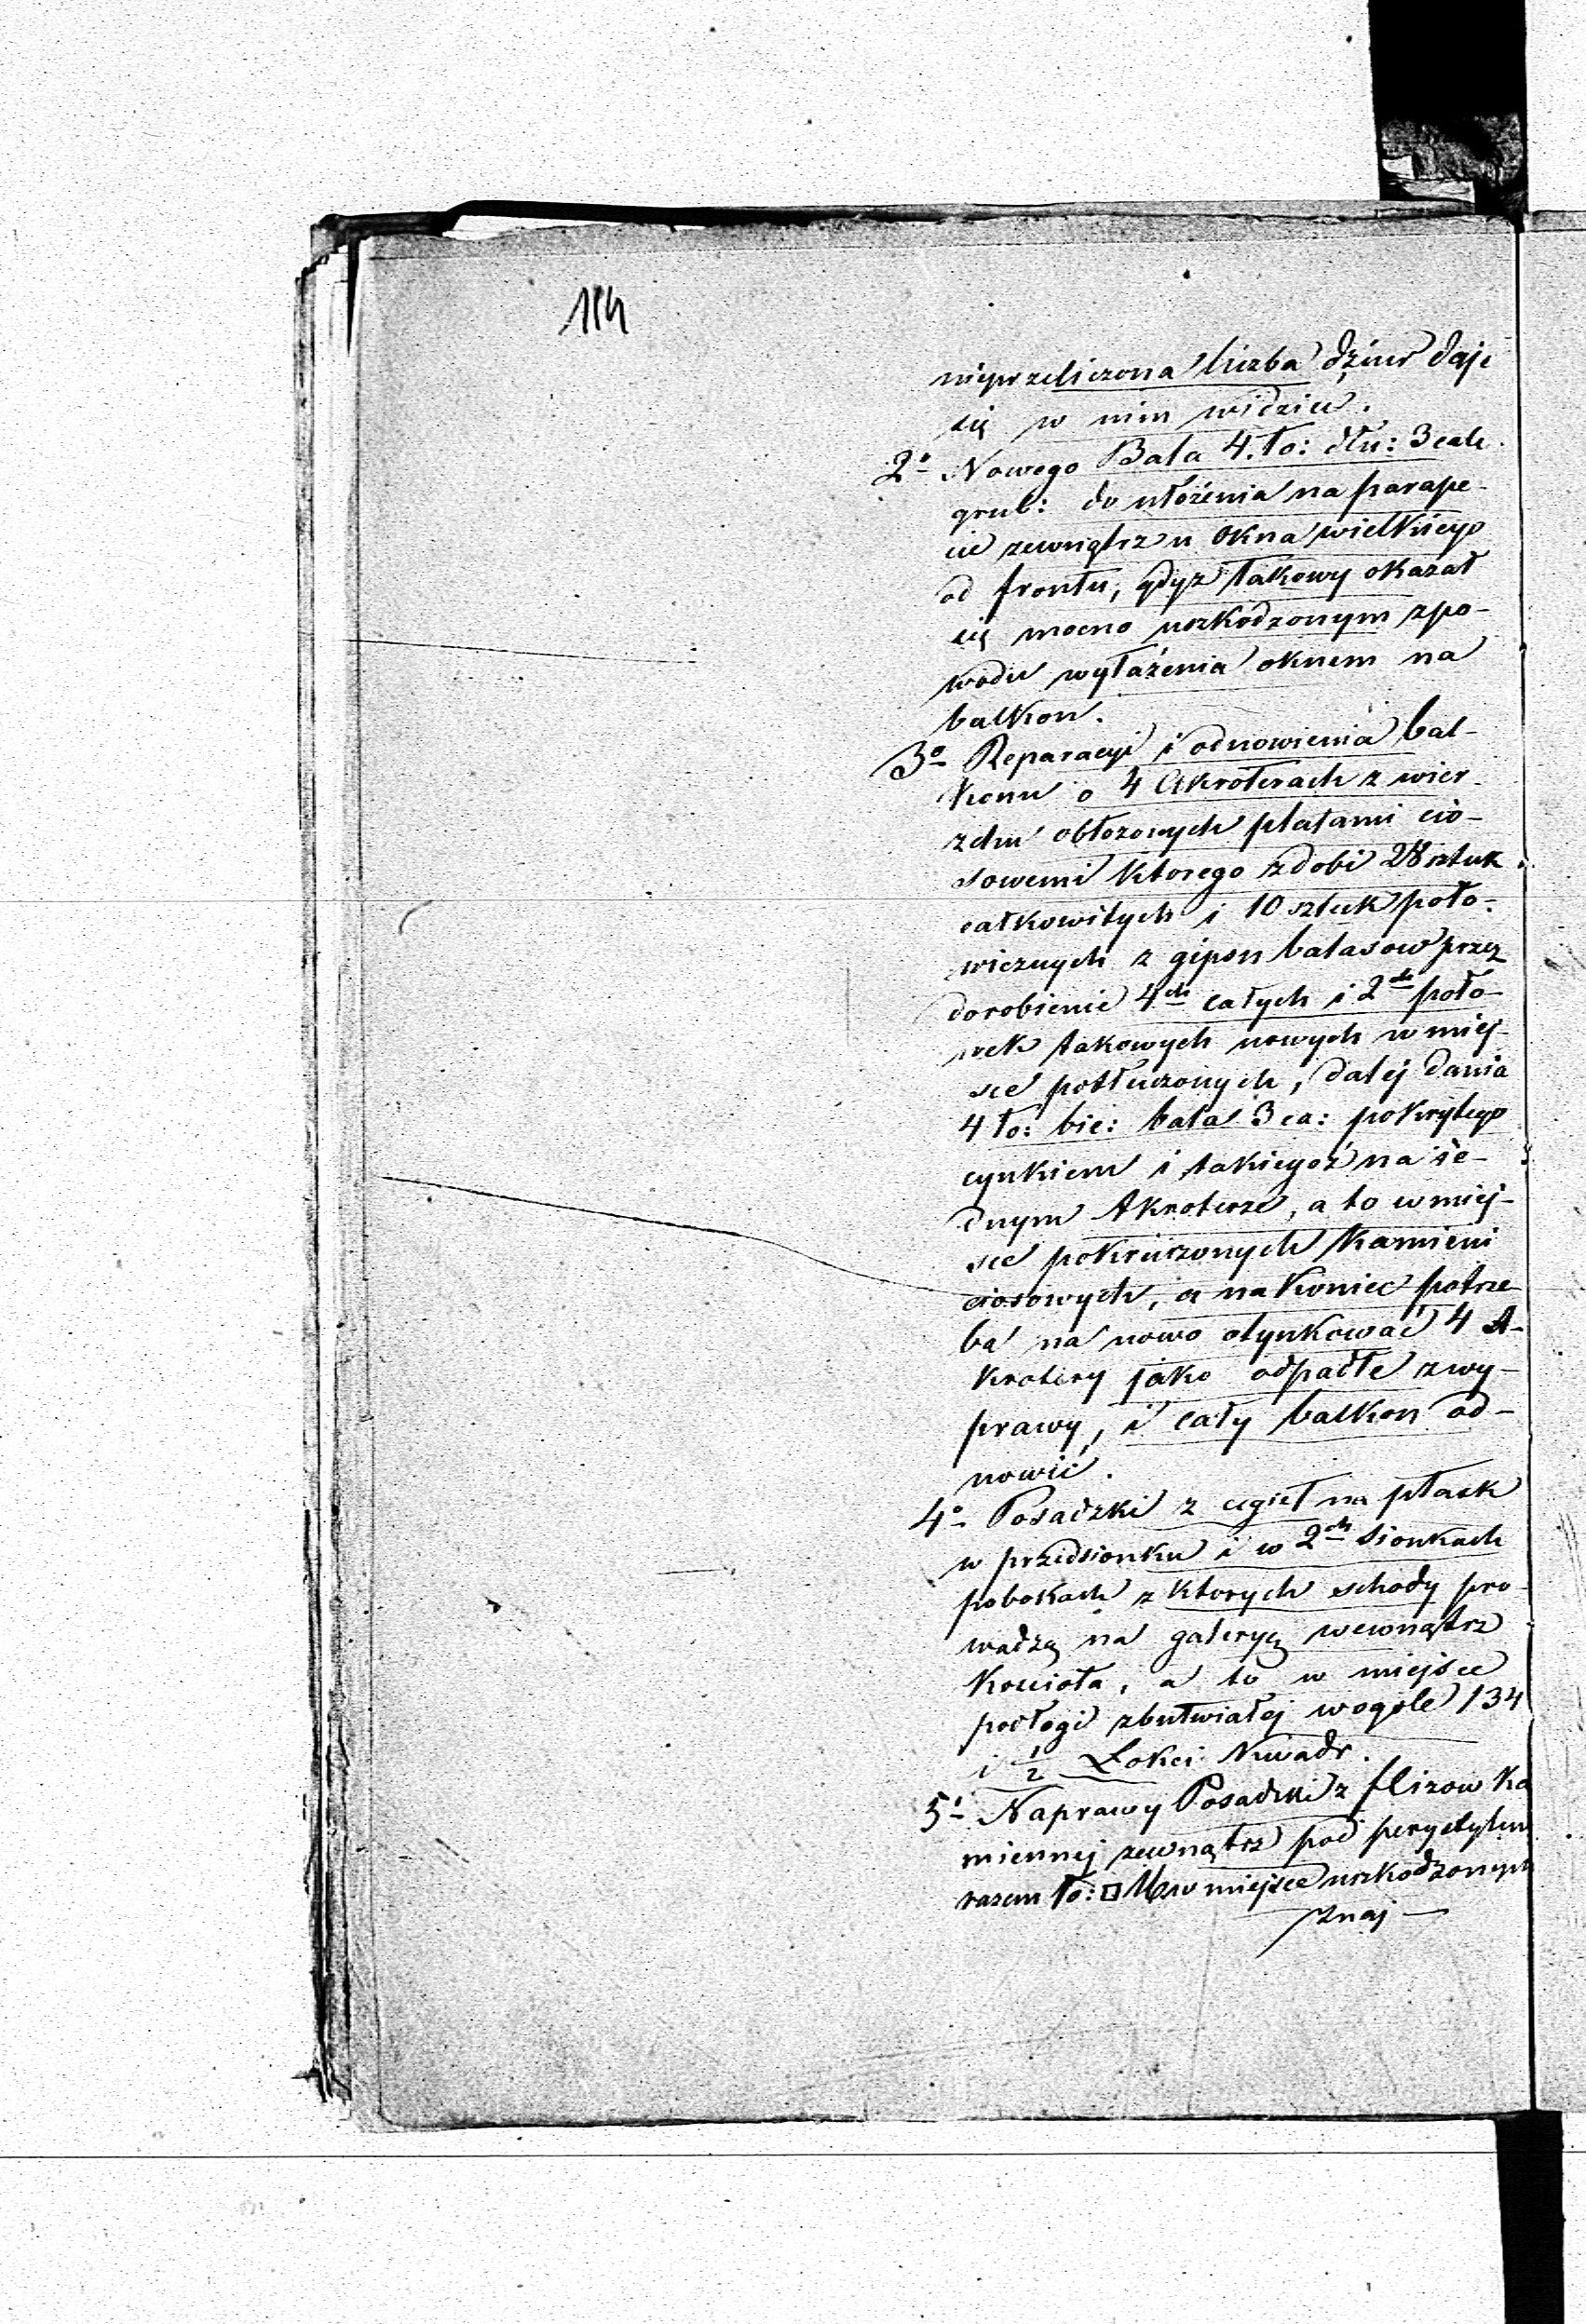 114
nieprzeliczona liczba dziur daje
się w nim widzieć.
2o Nowego Bala 4. ło: dłu: 3 cale
grub: do ułożenia na parape-
cie zewnątrz u okna wielkiego
od frontu, gdyż takowy okazał
się mocno uszkodzonym zpo-
wodu wyłażenia oknem na
balkon.
3o Reparacyi i odnowienia bal-
konu o 4 Akroterach z wier-
zchu obłożonych płatami cio-
sowemi ktorego zdobi 28 sztuk
całkowitych i 10 sztuk poło-
wicznych z gipsu balasow przez
dorobienie 4ch całych i 2ch poło-
wek takowych nowych w miej-
sce potłuczonych, dalej dania
4 ło: bie: bala 3 ca: pokrytego
cynkiem i takiegoż na je-
dnym Akroterze, a to w miej-
sce pokruszonych kamieni
ciosowych, a nakoniec potrze-
ba na nowo otynkować 4 A-
krotery jako odpadłe z wy-
prawy, i cały balkon od-
nowić.
4o Posadzki z cegieł na płask
w przedsionku i w 2ch sionkach
pobokach z ktorych schody pro-
wadzą na galeryą wewnątrz
Kościoła, a to w miejsce
podłogi zbutwiałej wogole 134
i 1/2 Łokci kwadr.
5o Naprawy Posadzki z flizow ka
miennej zewnątrz pod perystylem
razem ło: □ 16 w miejsce uszkodzonych
znaj-